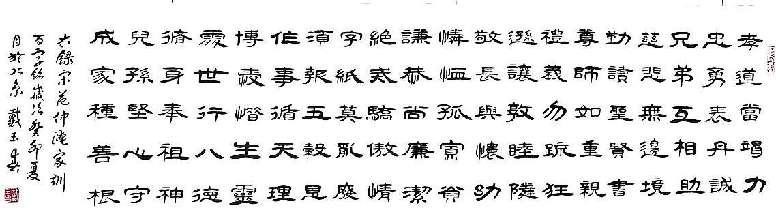 孝道當竭力
忠勇表丹誠
兄弟互相助
慈悲無邊境
勤讀聖賢書
尊師如重親
禮義勿疏狂
遜讓敦睦隣
敬長與懷幼
憐恤孤寡貧
謙恭尚廉潔
絕戒驕傲情
字紙莫亂廢
須報五穀恩
作事循天理
博愛惜生靈
處世行八德
脩身奉祖神
兒孫堅心守
成家種善根
錄宋范仲淹家訓
百字銘歲次癸卯夏
月於北京 戴玉